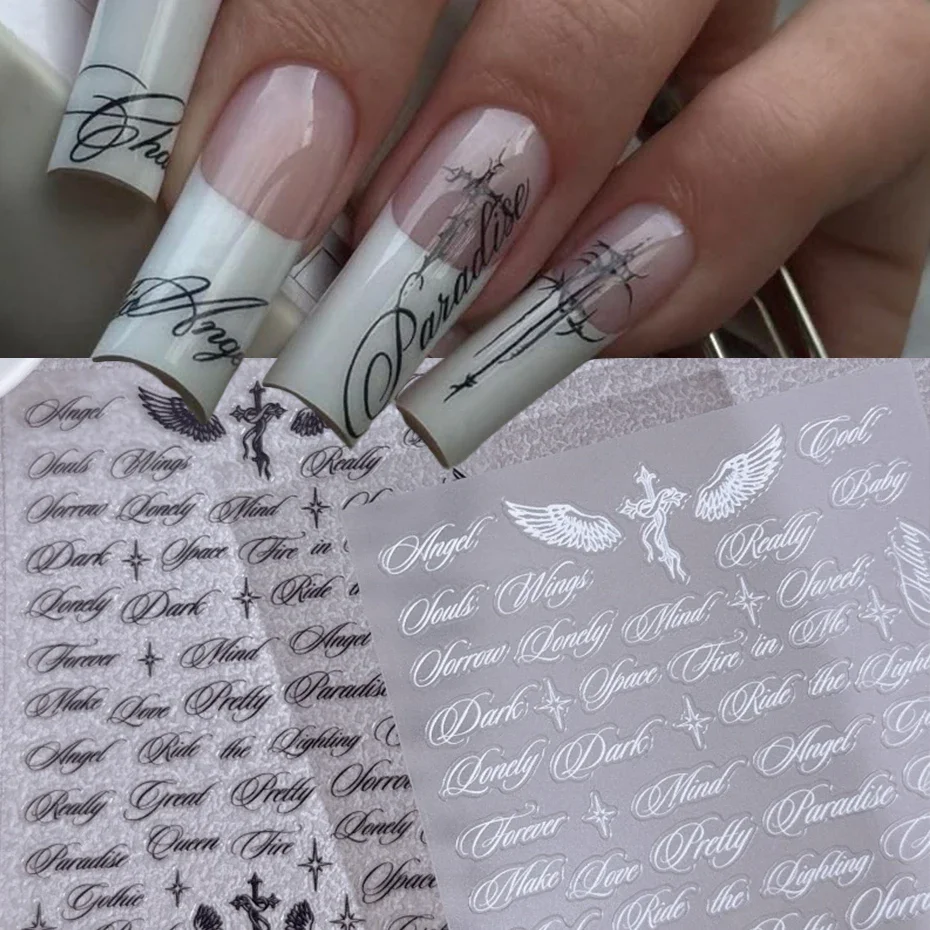 Cha
Ang
Paradise
Angel
Souls Wings Really
Sorrow Lonely Mind
Dark Space Fire in
Lonely Dark Ride
Forever Mind Angel
Make Love Pretty Paradise
Angel Ride the Lighting
Really Great Pretty Sorrow
Paradise Queen Fire Lonely
Gothic Space
Cool
Angel Baby
Souls Wings Really
Sorrow Lonely Mind Sweet
Dark Space Fire in Me
Lonely Dark Ride the Light
Forever Mind Angel
Make Love Pretty Paradise
Ride the Lighting
Sorrow